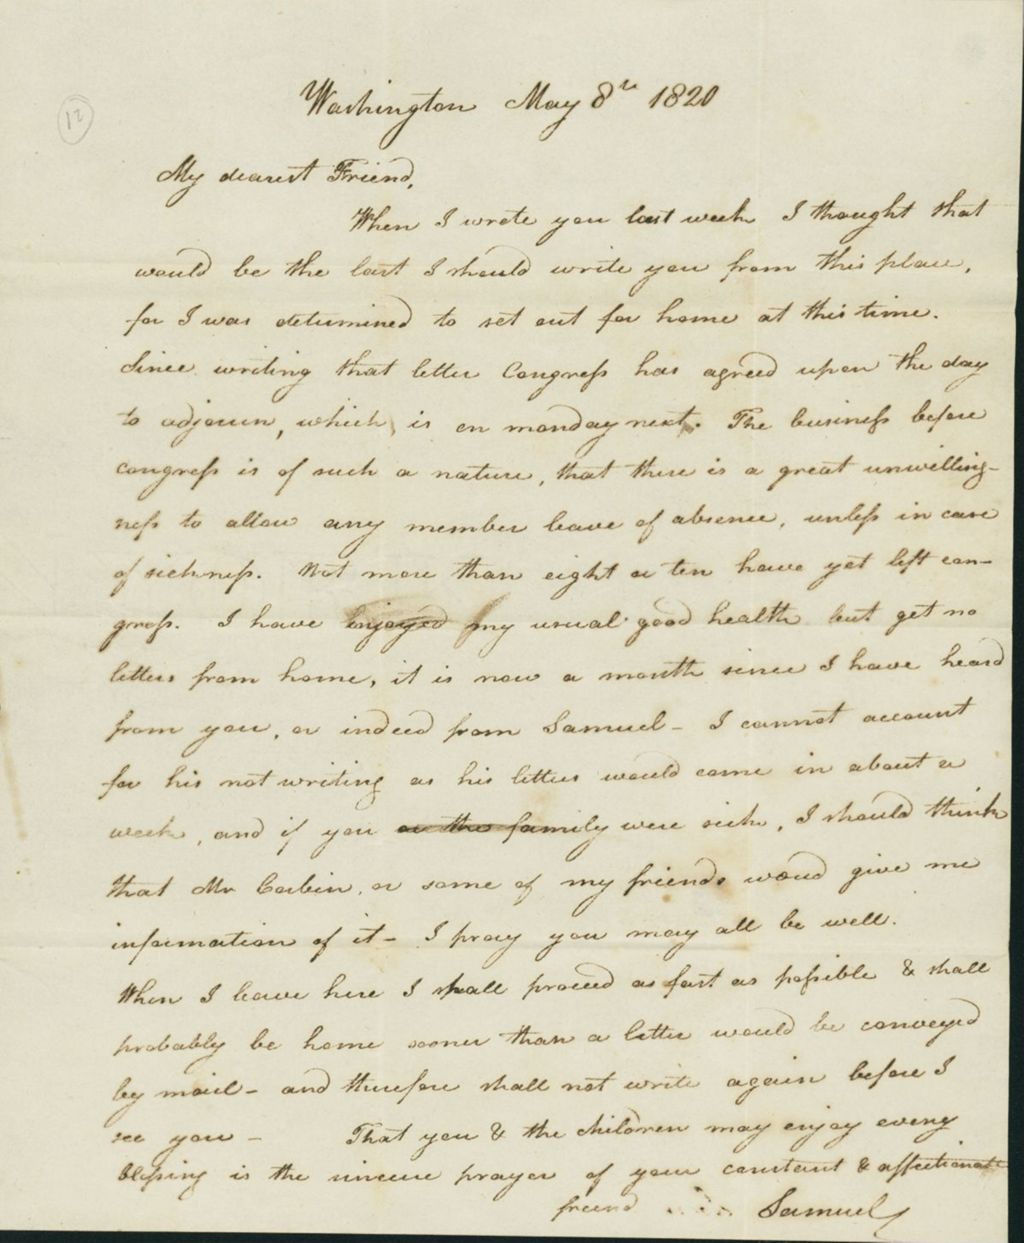 12
Washington May 8th 1820
My dearest Friend,
When I wrote you last week I thought that
would be the last I should write you from this place,
for I was determined to set out for home at this time.
Since writing that letter Congress has agreed upon the day
to adjourn, which is on monday next. The business before
congress is of such a nature, that there is a great unwilling-
ness to allow any member leave of absence, unless in case
of sickness. Not more than eight or ten have yet left con-
gress. I have enjoyed my usual good health but get no
letters from home, it is now a month since I have heard
from you, or indeed from Samuel - I cannot account
for his not writing as his letters would come in about a
week, and if you or the family were sick, I should think
that Mr Corbin, or some of my friends woud give me
information of it - I pray you may all be well.
When I leave here I shall proceed as fast as possible & shall
probably be home sooner than a letter would be conveyed
by mail - and therefore shall not write again before I
see you - That you & the children may enjoy every
blessing is the sincere prayer of your constant & affectionate
friend Samuel